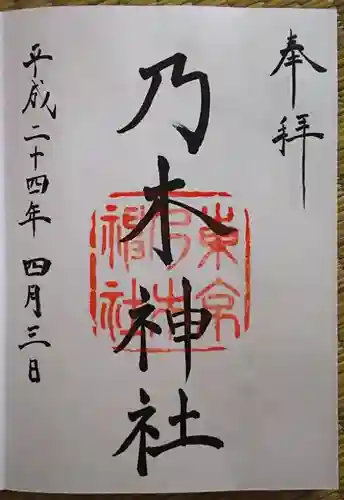 奉拝
乃木神社
東京
乃木
神社
平成二十四年 四月三日